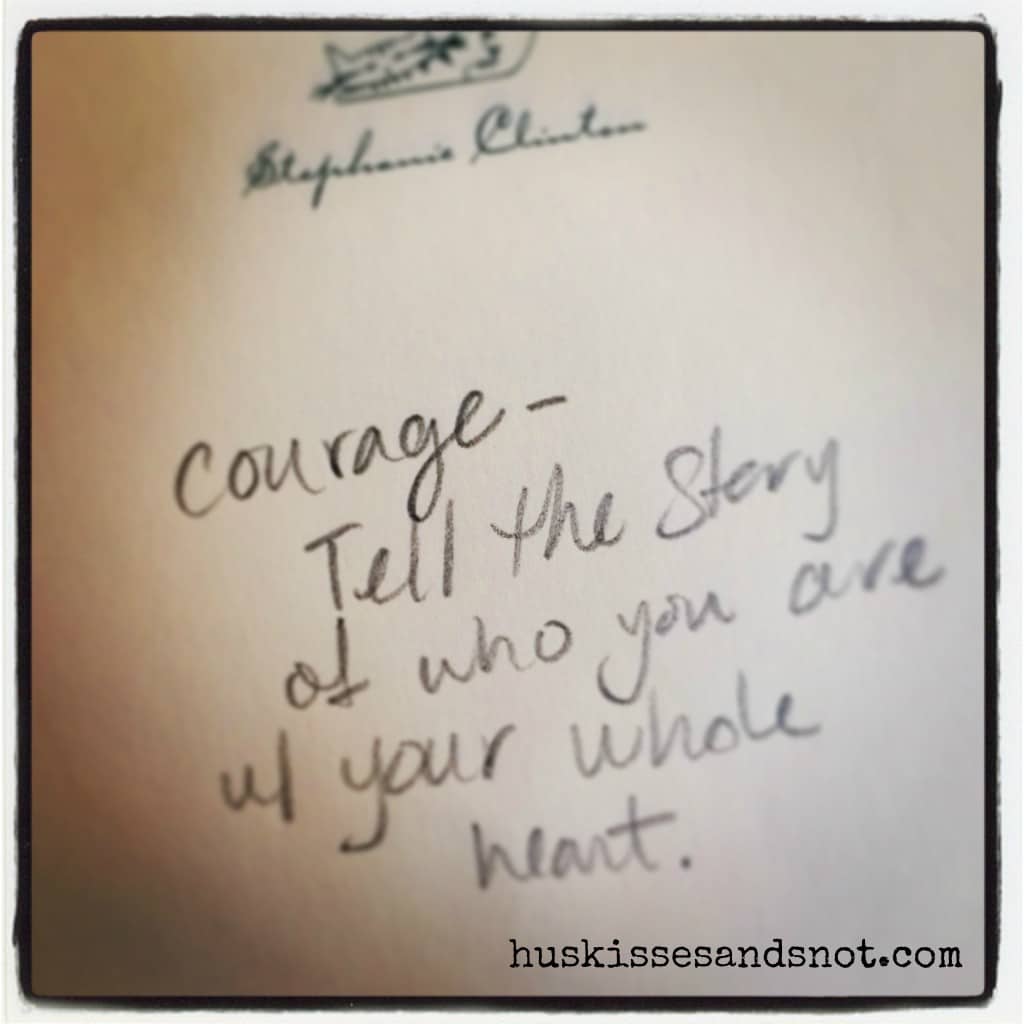 Stephanie Clinton
Courage -
Tell the Story
of who you are
w/ your whole
heart.
huskissesandsnot.com